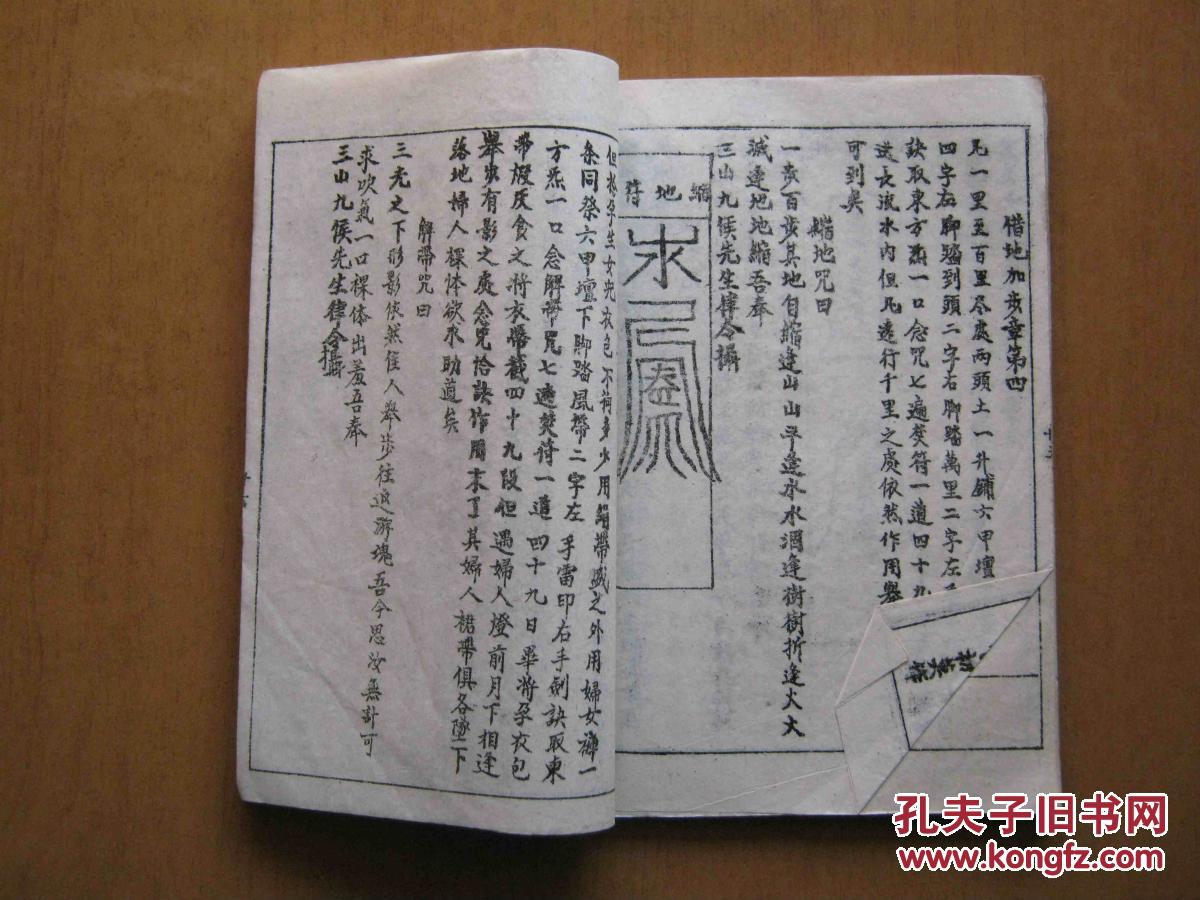 借地加步章第四
凡一里至百里尽處两頭土一升鋪六甲壇
四字左脚踏到頭二字右脚踏萬里二字左
訣取東方炁一口念咒七遍焚符一道四十九
送長流水内但凡遠行千里之處依然作用舉
可到矣
縮地咒曰
一步百步其地自縮逢山山平逢水水涸逢樹樹折逢火火
滅逢地地縮吾奉
三山九侯先生律令攝
縮地符
生女
衣包不荷多少用絹帶盛之外用婦女褲一
条同祭六甲壇下脚踏風帶二字左手雷印右手劍訣取東
方炁一口念解帶咒七遍焚符一道四十九日畢將孕衣包
帶假灰食之將衣帶截四十九段但遇婦人燈前月下相逢
舉步有影之處念咒恰訣作用未了其婦人裙帶俱各墜下
落地婦人裸体欲求助道矣
解帶咒曰
三光之下形影依然佳人舉步往返游魂吾今思汝無計可
求吹氣一口裸体出羞吾奉
三山九侯先生律令攝
孔夫子旧书网
www.kongfz.com